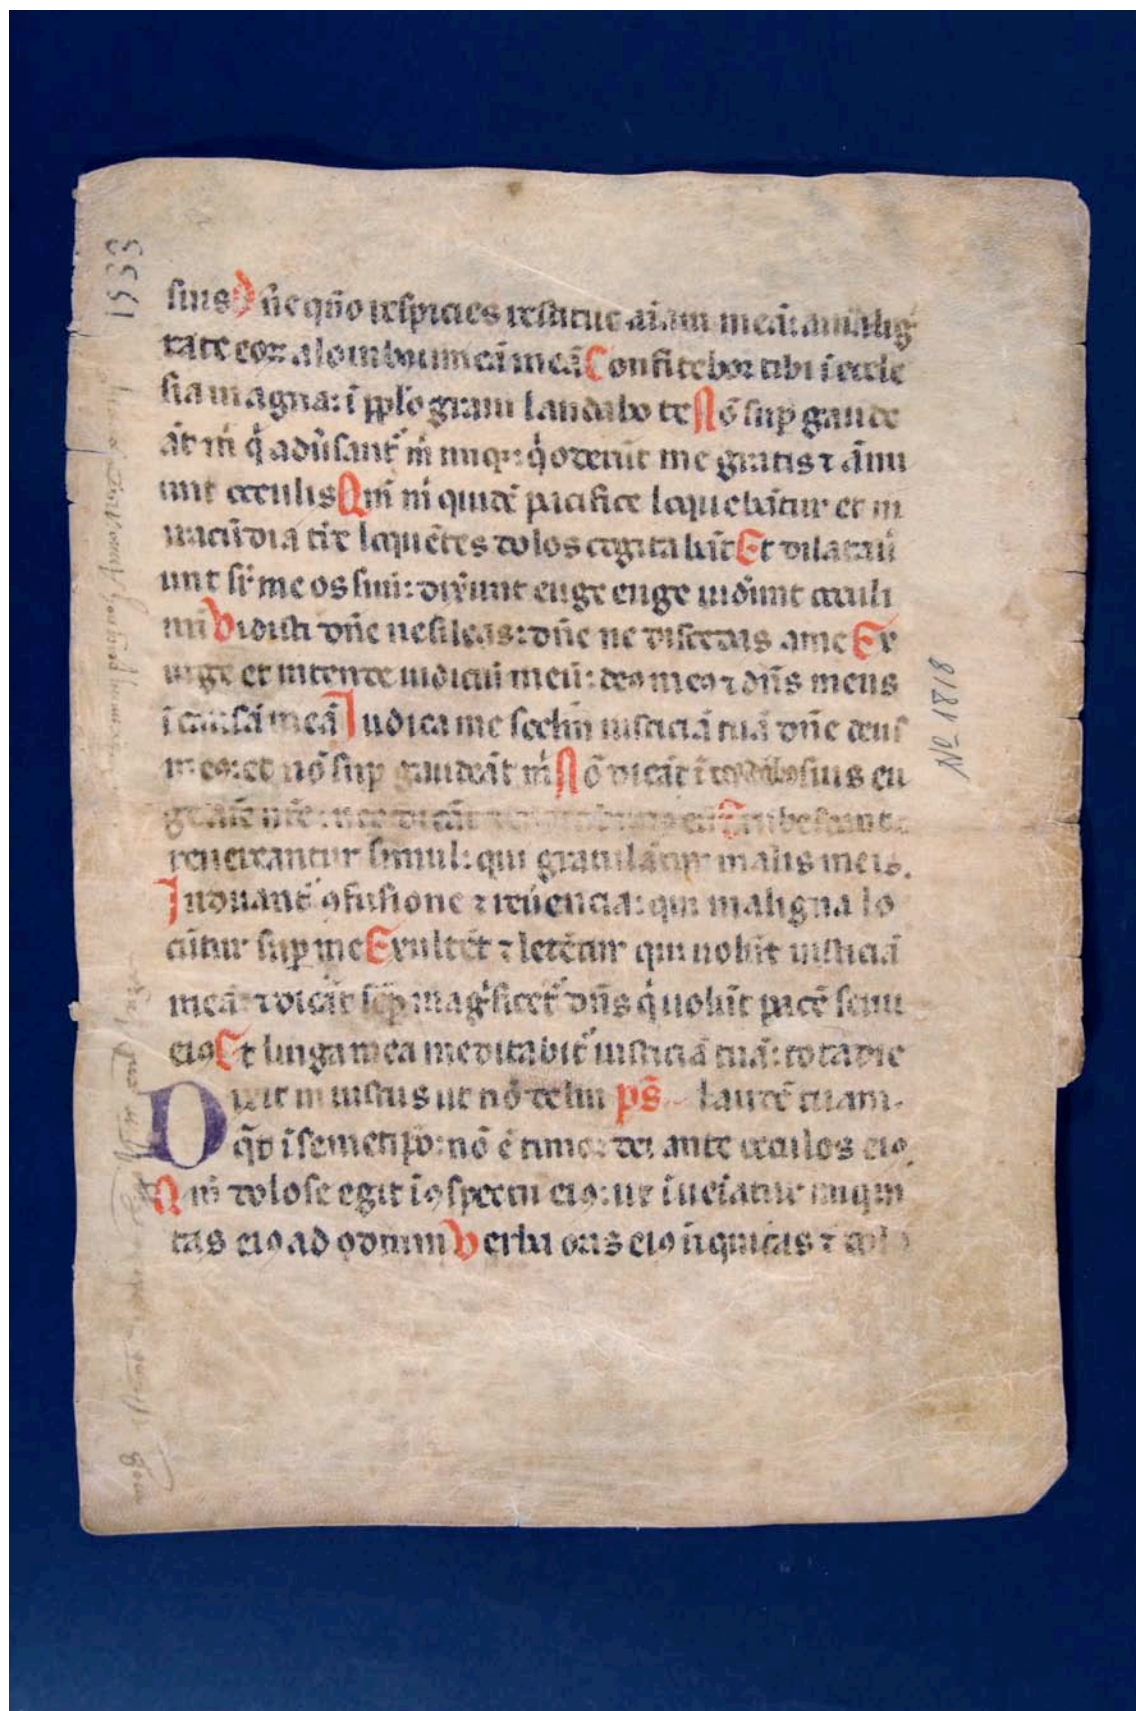 suis Dñe qño respicies restitue aīam meā: a malig
tate eoꝝ a leonibus unicā meā Confitebor tibi ī eccle
sia magna: ī pplo graui laudabo te Nō suꝑ gaude
āt m̄ q̇ adūsant᷑ m̄ iniq̄: q̇ oderūt me gratis ⁊ ānu
unt oculis Qm̄ m̄ quidē pacifice loquebāntur et in
iracūdia t̄re loquētes dolos cogitabāt Et dilataū
unt sr̄ me os suū: dixūnt euge euge uidūnt oculi
nri Vidisti dñe ne sileas: dñe ne discedas a me Ex
urge et intende iudiciū meū: deꝰ meꝰ ⁊ dñs meus
ī causā meā Iudica me scdm̄ iusticiā tuā dñe deus
meꝰ: et nō suꝑ gaudeāt m̄ Nō dicāt ī cordibꝰ suis eu
ge aīe nrē: nec dicāt Erubescant
reuereantur simul: qui gratulātur malis meis.
Induant᷑ ꝯfusione ⁊ reuencia: qui maligna lo
cūtur suꝑ me Exultēt ⁊ letētur qui uolūt iusticiā
meā: ⁊ dicāt sēꝑ mag̊ficet᷑ dñs q̇ uolūt pacē serui
eiꝰ Et lingua mea meditabit᷑ iusticiā tuā: tota die
Dixit iniustus ut nō delin ps̄ laudē tuam.
q̄t ī semetipo: nō ē timor dei ante oculos eiꝰ
Qm̄ dolose egit ī ꝯspectu eiꝰ: ut īueiatur iniqui
tas eiꝰ ad odium Verba oris eiꝰ īiquitas ⁊ dolꝰ
1533
Nº 1818